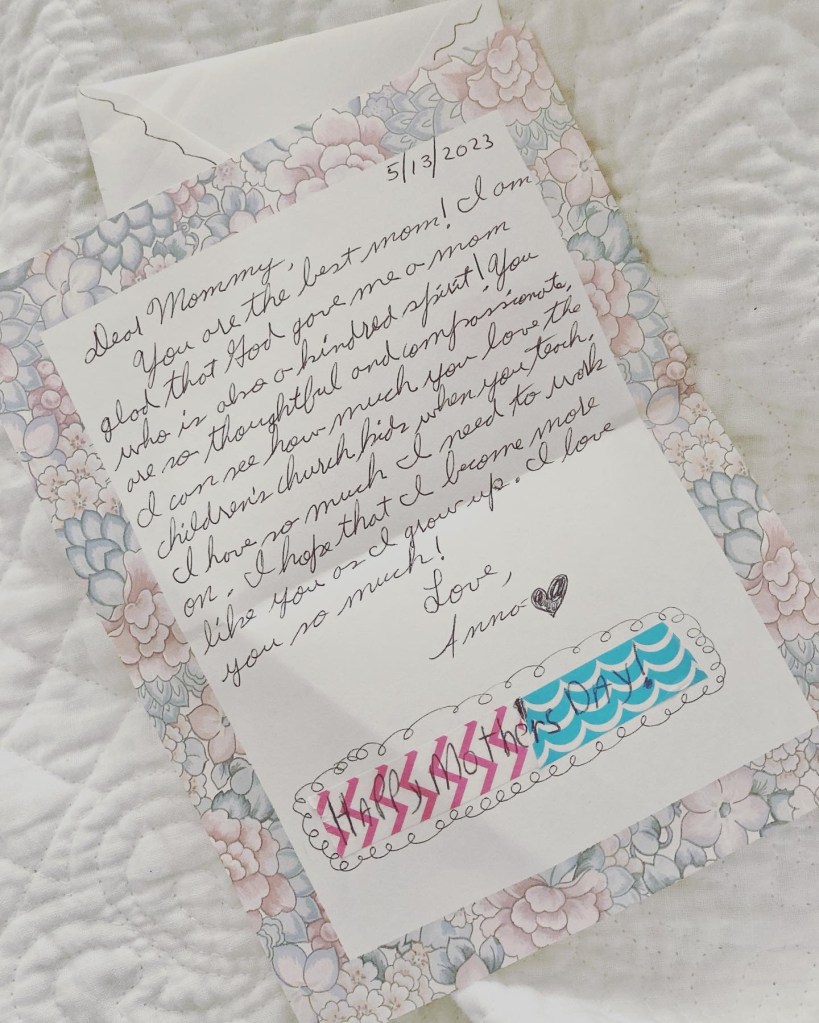 5/13/2023
Dear Mommy,
You are the best mom! I am
glad that God gave me a mom
who is also a kindred spirit! You
are so thoughtful and compassionate,
I can see how much you love the
children's church kids when you teach.
I have so much I need to work
on. I hope that I become more
like you as I grow up. I love
you so much!
Love,
Anna
Happy Mother's DAY!